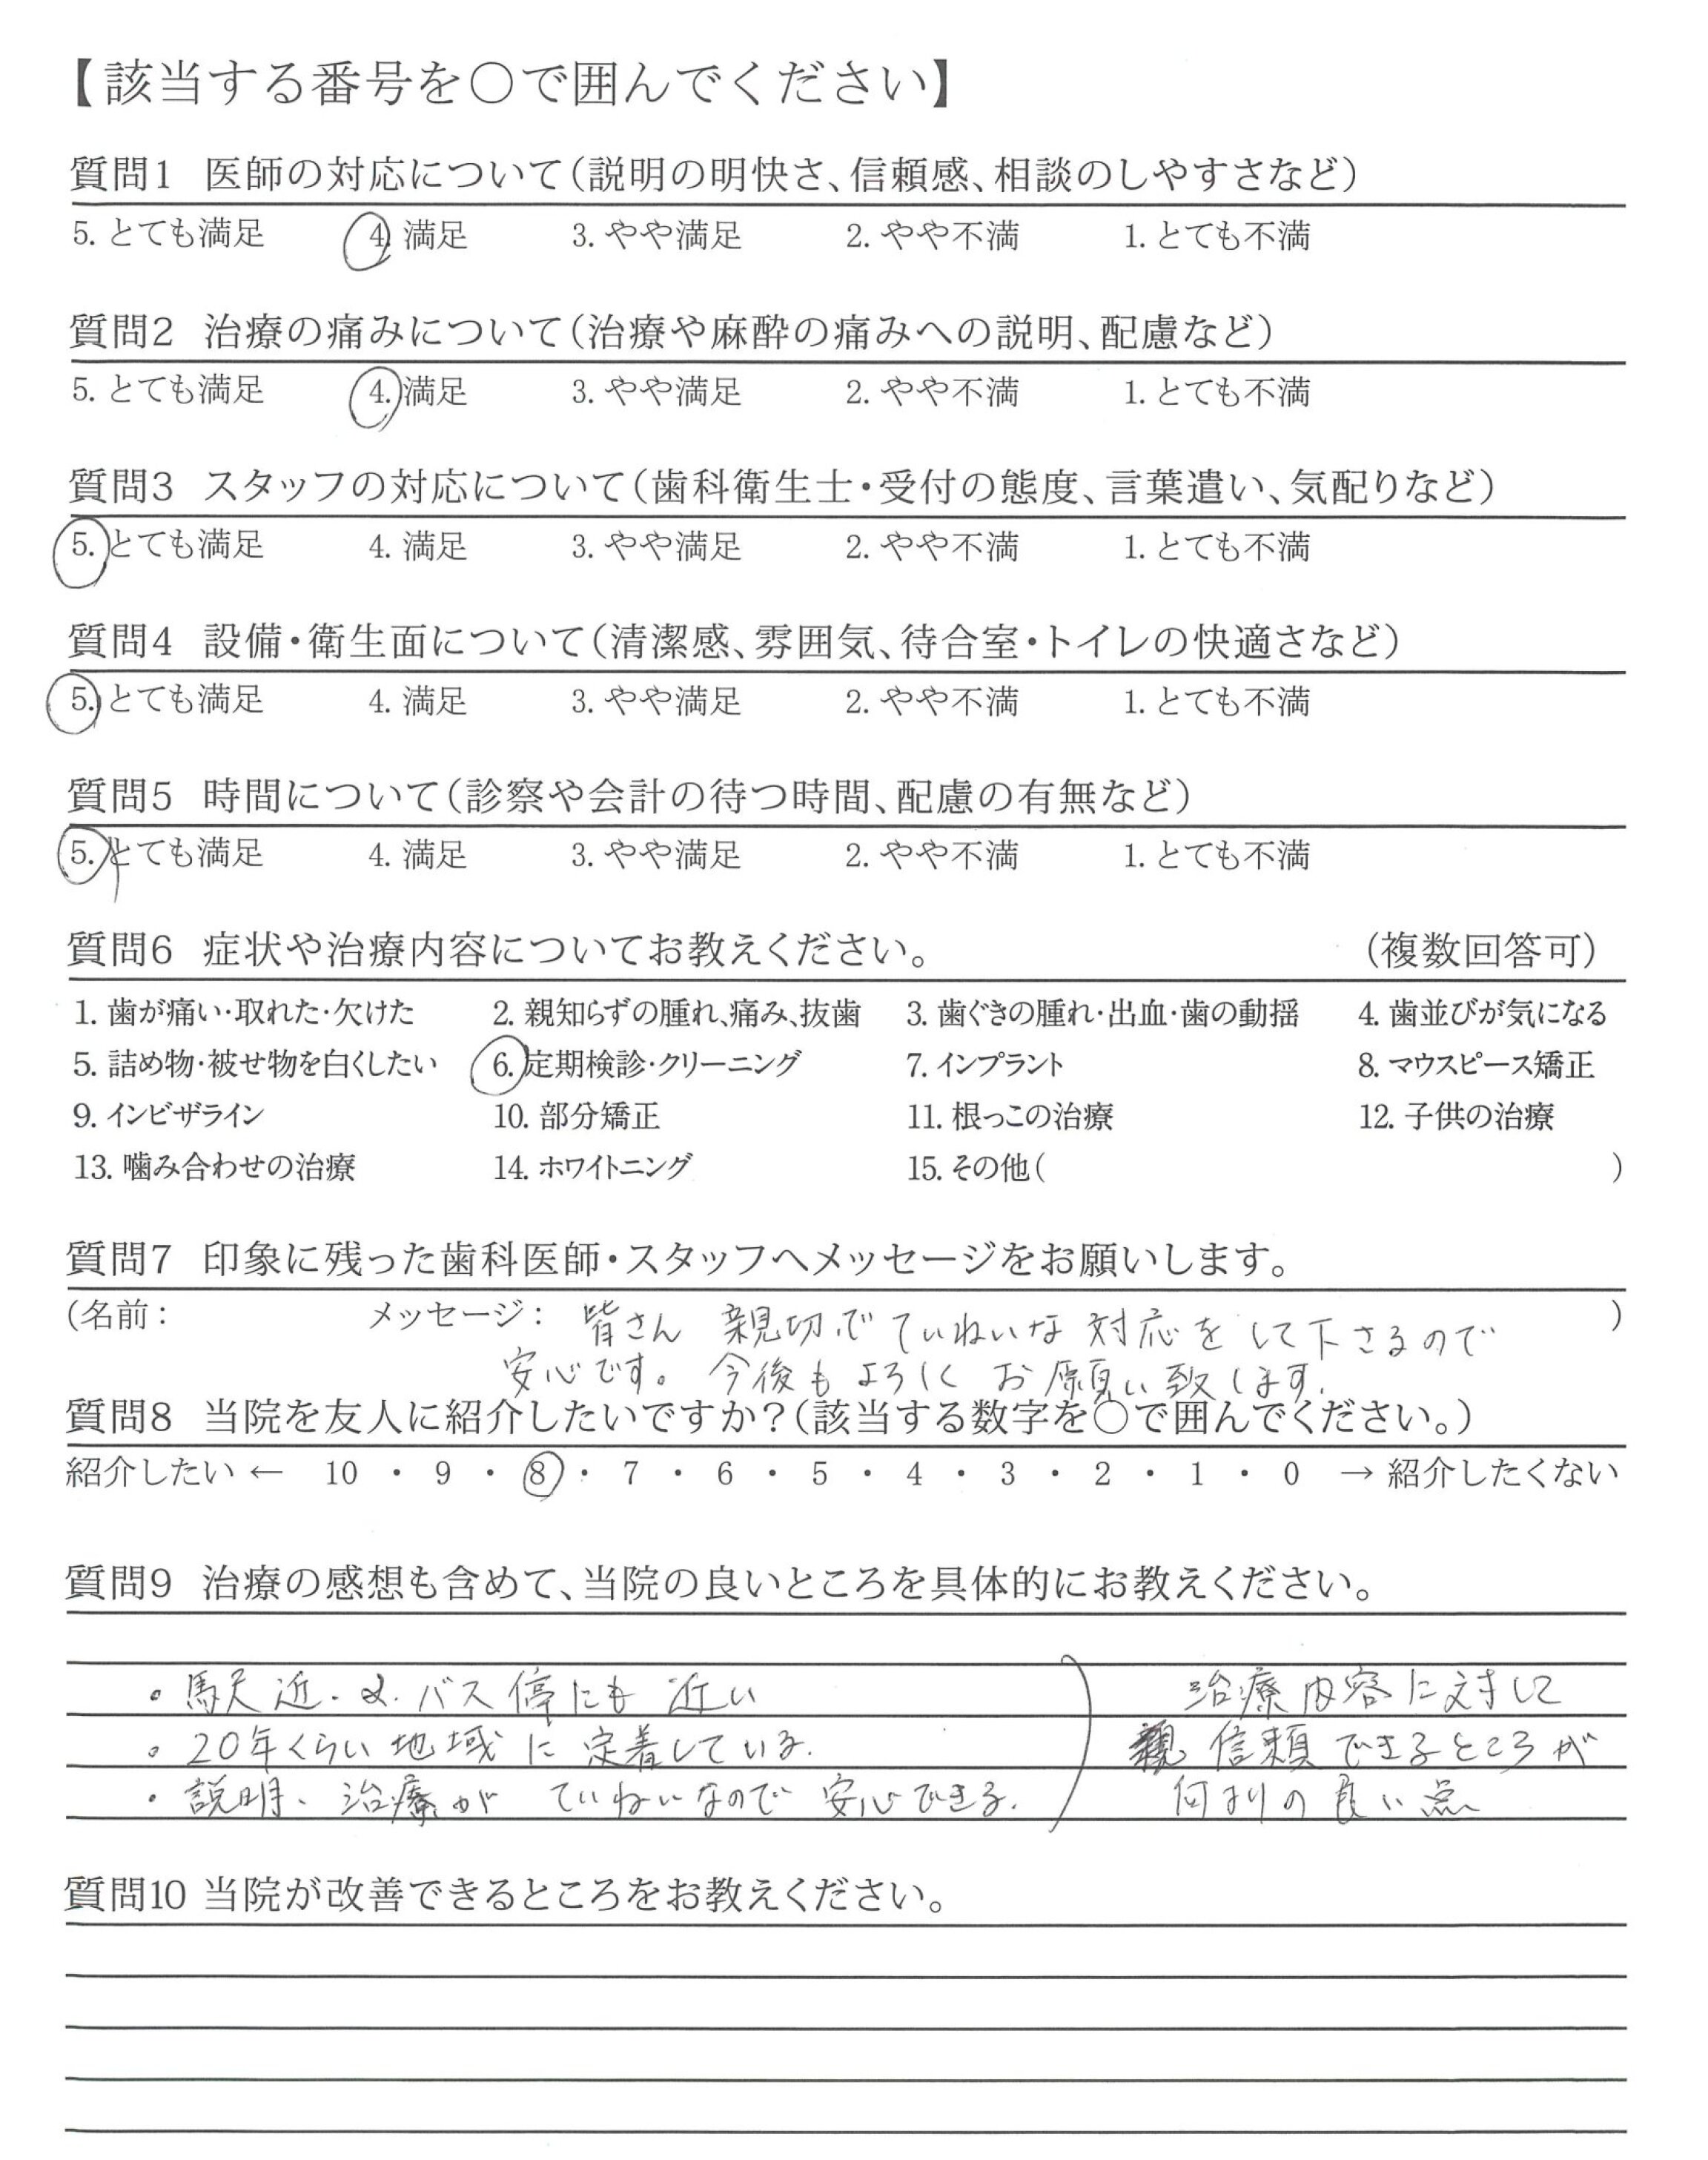 【該当する番号を○で囲んでください】
質問1 医師の対応について(説明の明快さ、信頼感、相談のしやすさなど)
5. とても満足 4. 満足 3. やや満足 2. やや不満 1. とても不満
質問2 治療の痛みについて(治療や麻酔の痛みへの説明、配慮など)
5. とても満足 4. 満足 3. やや満足 2. やや不満 1. とても不満
質問3 スタッフの対応について(歯科衛生士・受付の態度、言葉遣い、気配りなど)
5. とても満足 4. 満足 3. やや満足 2. やや不満 1. とても不満
質問4 設備・衛生面について(清潔感、雰囲気、待合室・トイレの快適さなど)
5. とても満足 4. 満足 3. やや満足 2. やや不満 1. とても不満
質問5 時間について(診察や会計の待つ時間、配慮の有無など)
5. とても満足 4. 満足 3. やや満足 2. やや不満 1. とても不満
質問6 症状や治療内容についてお教えください。 (複数回答可)
1. 歯が痛い・取れた・欠けた 2. 親知らずの腫れ、痛み、抜歯 3. 歯ぐきの腫れ・出血・歯の動揺 4. 歯並びが気になる
5. 詰め物・被せ物を白くしたい 6. 定期検診・クリーニング 7. インプラント 8. マウスピース矯正
9. インビザライン 10. 部分矯正 11. 根っこの治療 12. 子供の治療
13. 噛み合わせの治療 14. ホワイトニング 15. その他( )
質問7 印象に残った歯科医師・スタッフへメッセージをお願いします。
(名前: メッセージ: 皆さん 親切で ていねいな 対応を して下さるので )
安心です。 今後も よろしく お願い致します.
質問8 当院を友人に紹介したいですか?(該当する数字を○で囲んでください。)
紹介したい ← 10 ・ 9 ・ 8 ・ 7 ・ 6 ・ 5 ・ 4 ・ 3 ・ 2 ・ 1 ・ 0 → 紹介したくない
質問9 治療の感想も含めて、当院の良いところを具体的にお教えください。
・ 近. バス停にも 近い
・ 20年くらい 地域 に 定着している.
・ 説明、治療が ていねいなので 安心できる.
治療内容に対して
信頼できるところが
何よりの良い点
質問10 当院が改善できるところをお教えください。